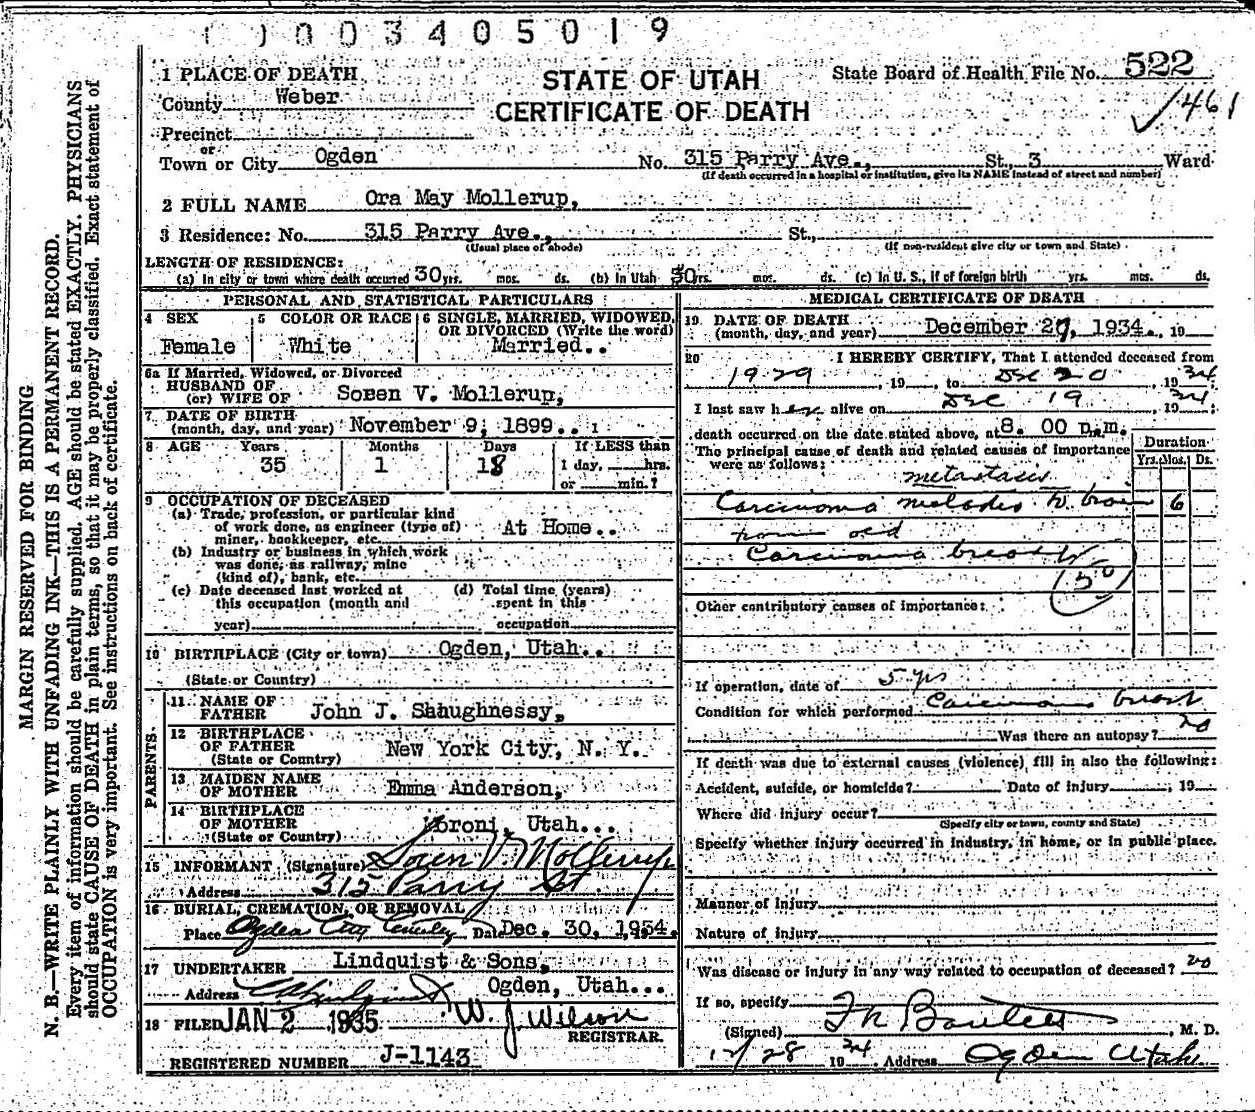 0003405019
STATE OF UTAH
CERTIFICATE OF DEATH
State Board of Health File No. 522
461
1 PLACE OF DEATH
County Weber
Precinct
or
Town or City Ogden No. 315 Parry Ave., St., 3 Ward
(If death occurred in a hospital or institution, give its NAME instead of street and number)
2 FULL NAME Ora May Mollerup,
3 Residence: No. 315 Parry Ave., St.,
(Usual place of abode) (If non-resident give city or town and State)
LENGTH OF RESIDENCE:
(a) In city or town where death occurred 30 yrs. mos. ds. (b) In Utah 30 yrs. mos. ds. (c) In U. S., if of foreign birth yrs. mos. ds.
PERSONAL AND STATISTICAL PARTICULARS
4 SEX
Female
5 COLOR OR RACE
White
6 SINGLE, MARRIED, WIDOWED,
OR DIVORCED (Write the word)
Married..
6a If Married, Widowed, or Divorced
HUSBAND OF
(or) WIFE OF Soren V. Mollerup,
7 DATE OF BIRTH
(month, day, and year) November 9, 1899..
8 AGE Years Months Days If LESS than
35 1 18 1 day, hrs.
or min.?
9 OCCUPATION OF DECEASED
(a) Trade, profession, or particular kind
of work done, as engineer (type of)
miner, bookkeeper, etc. At Home..
(b) Industry or business in which work
was done, as railway, mine
(kind of), bank, etc.
(c) Date deceased last worked at
this occupation (month and
year)
(d) Total time (years)
spent in this
occupation
10 BIRTHPLACE (City or town) Ogden, Utah..
(State or Country)
PARENTS
11 NAME OF
FATHER John J. Shaughnessy,
12 BIRTHPLACE
OF FATHER New York City, N. Y.
(State or Country)
13 MAIDEN NAME
OF MOTHER Emma Anderson,
14 BIRTHPLACE
OF MOTHER Moroni, Utah...
(State or Country)
15 INFORMANT (Signature) Soren V Mollerup
Address 315 Parry St
16 BURIAL, CREMATION, OR REMOVAL
Place Ogden City Cemetery Date Dec. 30, 1934.
17 UNDERTAKER Lindquist & Sons,
Address Ogden, Utah...
18 FILED JAN 2 1935 W. J. Wilson
REGISTRAR.
REGISTERED NUMBER J-1143
MEDICAL CERTIFICATE OF DEATH
19 DATE OF DEATH
(month, day, and year) December 27, 1934. 19
20 I HEREBY CERTIFY, That I attended deceased from
1929, 19 to Dec 20, 1934;
I last saw her alive on Dec 19, 1934;
death occurred on the date stated above, at 8. 00 p.m.
The principal cause of death and related causes of importance
were as follows:
Duration
Yrs. Mos. Ds.
metastasis
Carcinoma to brain 6
from old
Carcinoma breast
Other contributory causes of importance:
If operation, date of 5 yrs
Condition for which performed Carcinoma breast
Was there an autopsy? no
If death was due to external causes (violence) fill in also the following:
Accident, suicide, or homicide? Date of injury, 19
Where did injury occur?
(Specify city or town, county and State)
Specify whether injury occurred in industry, in home, or in public place.
Manner of Injury
Nature of injury
Was disease or injury in any way related to occupation of deceased? no
If so, specify
(Signed) , M. D.
12/28 1934 Address Ogden Utah.
MARGIN RESERVED FOR BINDING
N. B.—WRITE PLAINLY WITH UNFADING INK—THIS IS A PERMANENT RECORD.
Every item of information should be carefully supplied. AGE should be stated EXACTLY. PHYSICIANS
should state CAUSE OF DEATH in plain terms, so that it may be properly classified. Exact statement of
OCCUPATION is very important. See instructions on back of certificate.